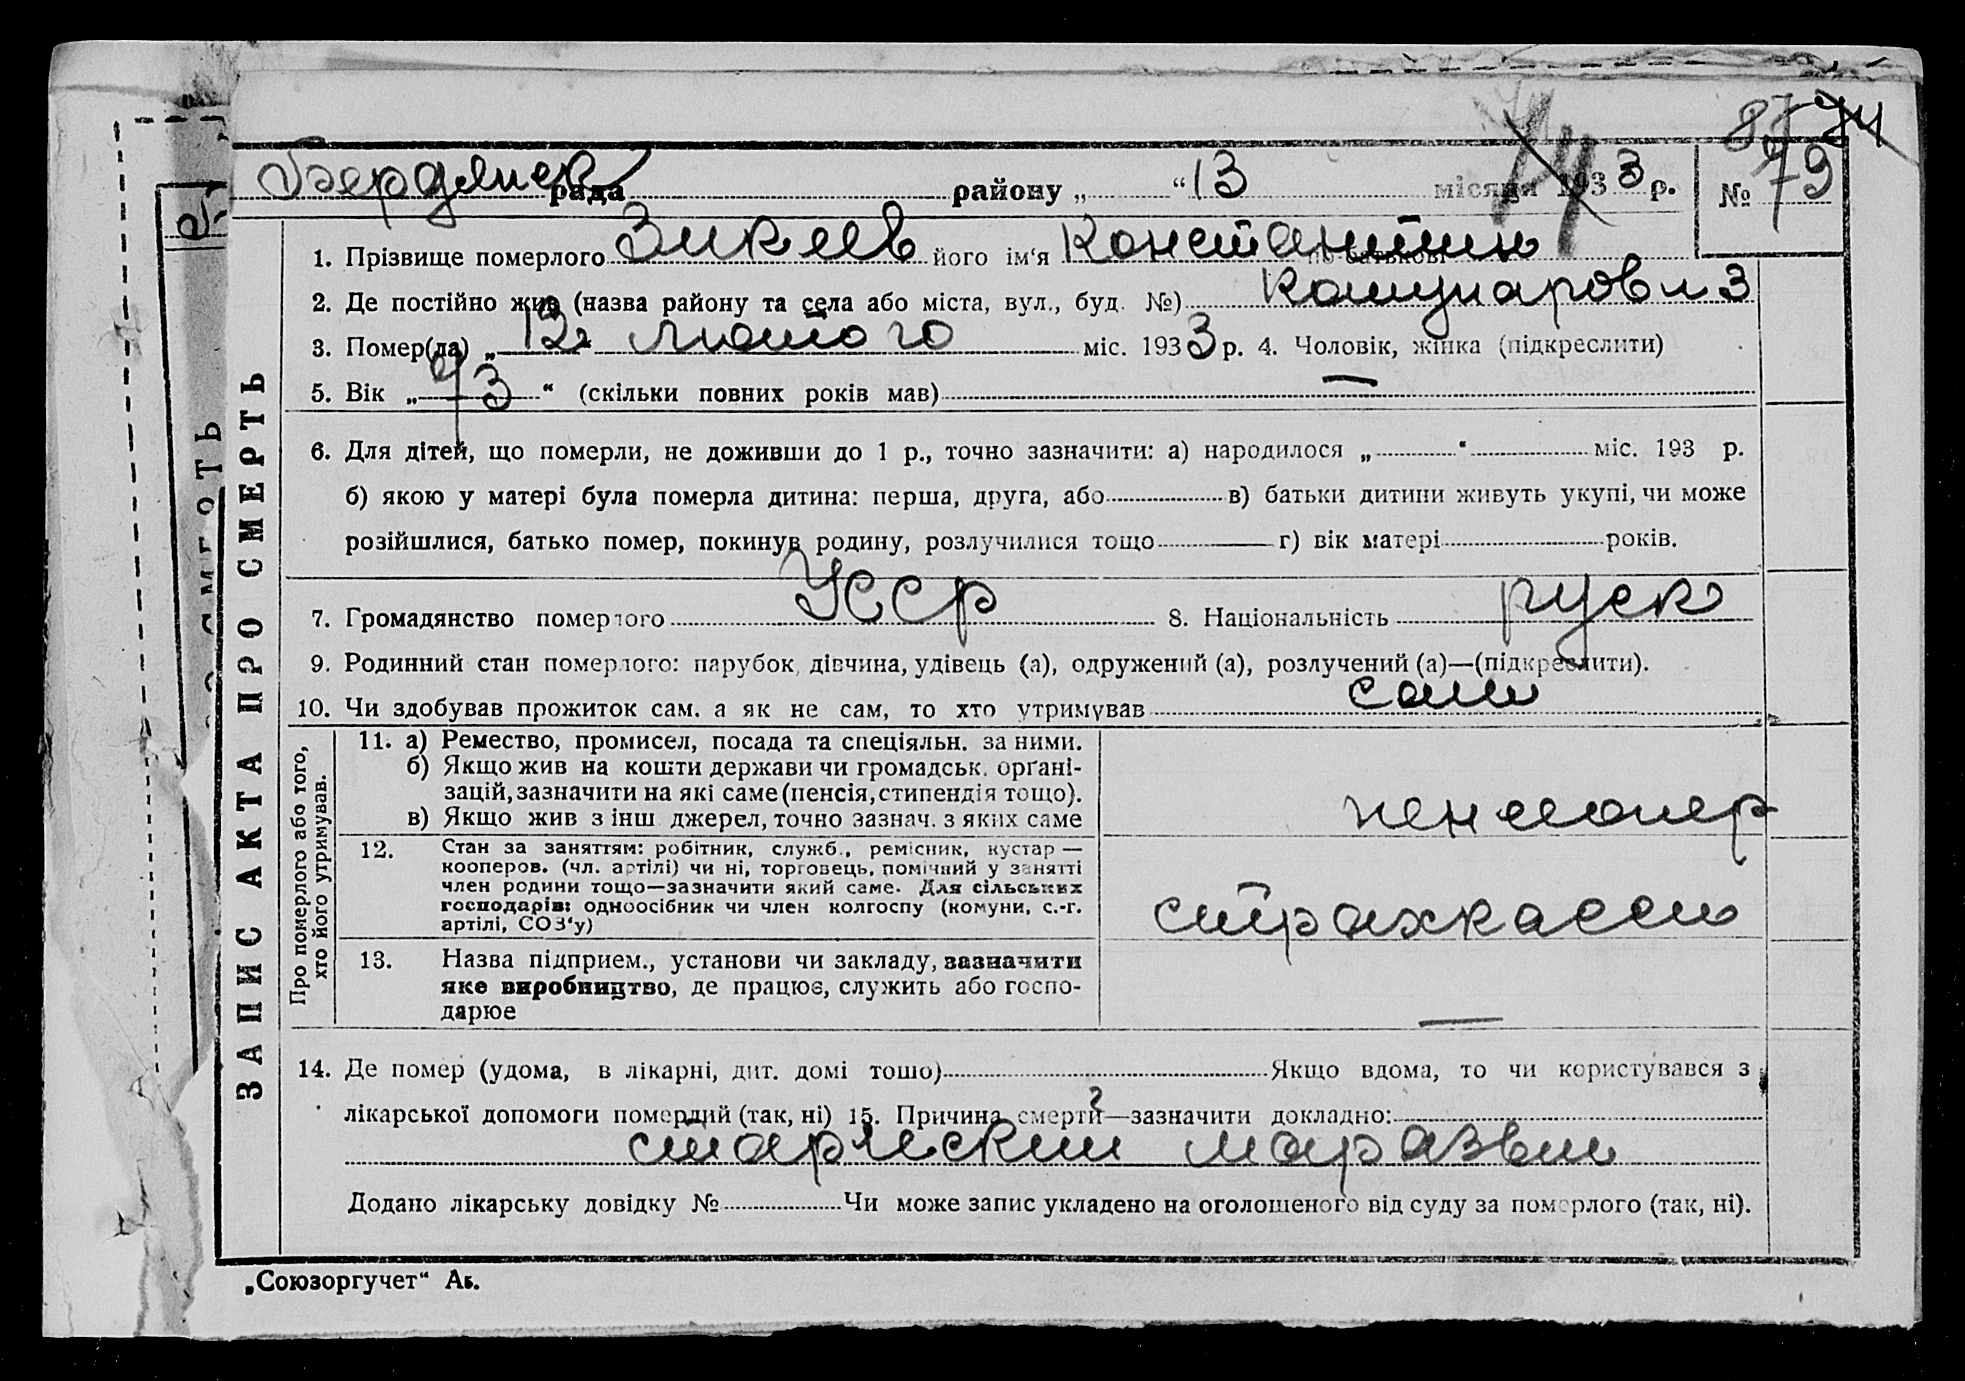 87 74
Бердянск рада району „ “ 13 місяця 1933 р. № 79
1. Прізвище померлого Зикеев його ім‘я Константин по батькові
2. Де постійно жив (назва району та села або міста, вул., буд. №) Комунаров 3
3. Помер(ла) „ 12 лютого міс. 1933 р. 4. Чоловік, жінка (підкреслити)
5. Вік „ 73 “ (скільки повних років мав)
6. Для дітей, що померли, не доживши до 1 р., точно зазначити: а) народилося „ “ міс. 193 р.
б) якою у матері була померла дитина: перша, друга, або в) батьки дитини живуть укупі, чи може
розійшлися, батько помер, покинув родину, розлучилися тощо г) вік матері років.
7. Громадянство померлого УССР 8. Національність руск
9. Родинний стан померлого: парубок, дівчина, удівець (а), одружений (а), розлучений (а)—(підкреслити).
10. Чи здобував прожиток сам, а як не сам, то хто утримував сам
ЗАПИС АКТА ПРО СМЕРТЬ
Про померлого або того,
хто його утримував.
11. а) Ремество, промисел, посада та спеціяльн. за ними.
б) Якщо жив на кошти держави чи громадськ. орґані-
зацій, зазначити на які саме (пенсія, стипендія тощо).
в) Якщо жив з інш джерел, точно зазнач. з яких саме
пенсионер
12. Стан за заняттям: робітник, служб., ремісник, кустар —
кооперов. (чл. артілі) чи ні, торговець, помічний у занятті
член родини тощо—зазначити який саме. Для сільських
господарів: одноосібник чи член колгоспу (комуни, с.-г.
артілі, СОЗ‘у)
страхкассы
13. Назва підприєм., установи чи закладу, зазначити
яке виробництво, де працює, служить або госпо-
дарює
14. Де помер (удома, в лікарні, дит. домі тощо) Якщо вдома, то чи користувався з
лікарської допомоги померлий (так, ні) 15. Причина смерти—зазначити докладно:
старческий маразвм
Додано лікарську довідку № Чи може запис укладено на оголошеного від суду за померлого (так, ні).
„Союзоргучет“ Аб.